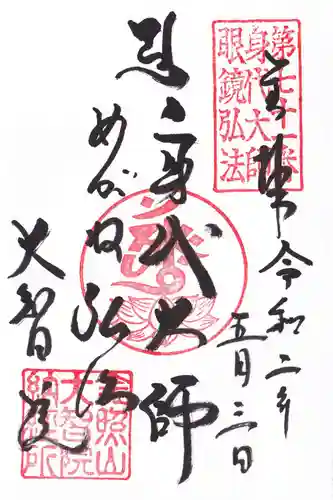 第七十一番
身代大師
眼鏡弘法
奉拝
令和二年
五月三日
身代大師
めがね弘法
大智院
照山
大智院
納経所